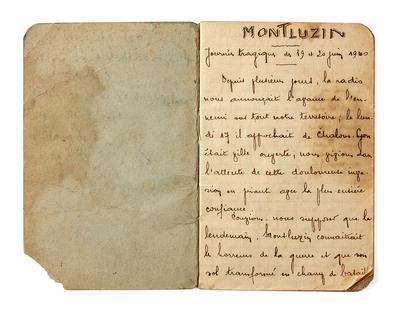 MONTLUZIN
Journées tragiques des 19 et 20 juin 1940
Depuis plusieurs jours, la radio
nous annonçait l'avance de l'en-
nemi sur tout notre territoire ; le lun-
di 17 il approchait de Chalon. Lyon
était ville ouverte, nous vivions dans
l'attente de cette douloureuse inva-
sion en priant avec la plus entière
confiance.
nous supposer que le
lendemain, Montluzin connaîtrait
les horreurs de la guerre et que son
sol transformé en champ de batail